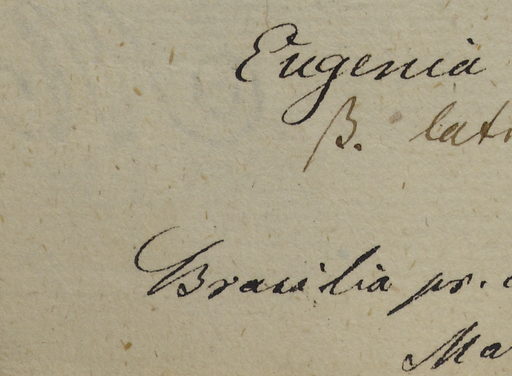 Eugenia
β. lat
Brasilia pr.
Ma